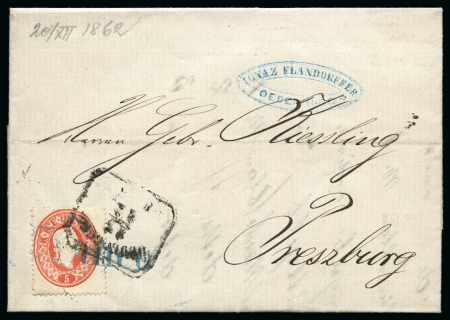 20/XII 1862
IGNAZ FLANDORFFER
Herren Gebr. Kiessling
Preszburg
5